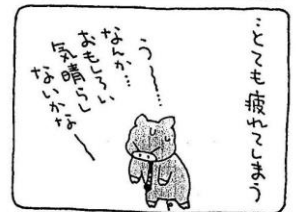 …とても疲れてしまう
う〜……
なんか…
おもしろい
気晴らし
ないかな〜